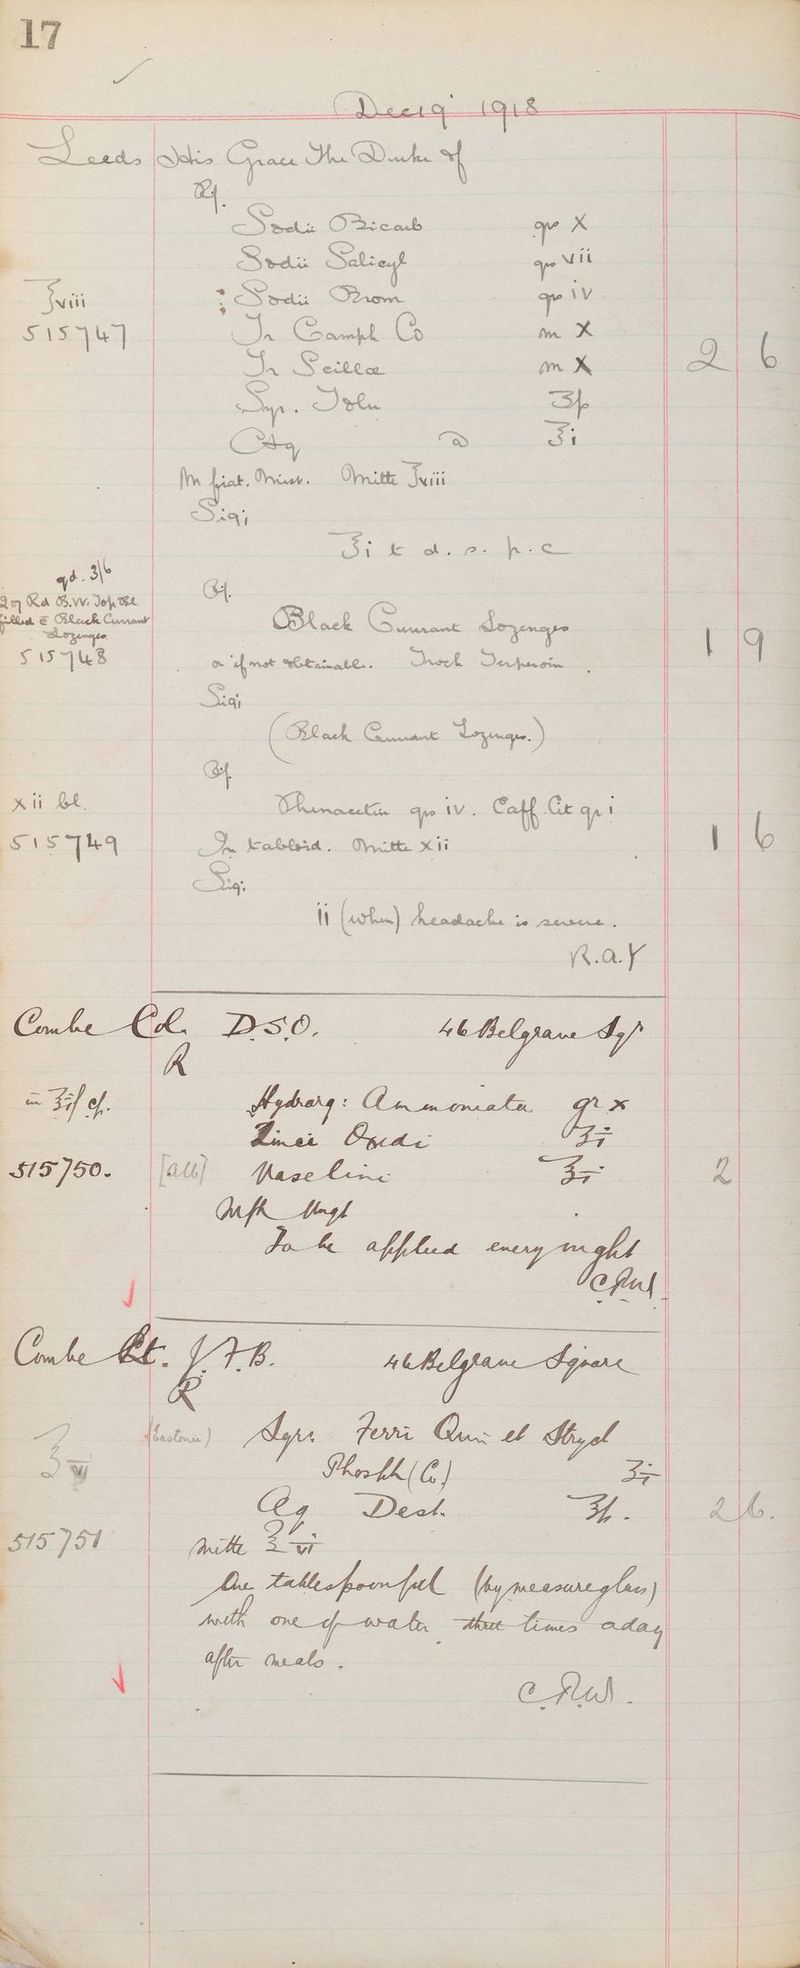 17
Dec 19 1918
Leeds His Grace The Duke of
Rf.
Sodii Bicarb grs X
Sodii Salicyl grs vii
℥viii : Sodii Brom grs iv
515747 Tr Camph Co m X
Tr Scillae m X 2 6
Syr. Tolu ʒß
Aq a ℥i
M fiat. Mist. Mitte ℥viii
Sig;
℥i t d. s. p. c
qd. 3/6 Rf.
2 oz Rd B.W. Top Btl
filled c̄ Black Currant Black Currant Lozenges
Lozenges 1 9
515748 or if not obtainable. Troch Terperoin.
Sig;
(Black Currant Lozenges.)
Rf.
xii bl. Phenacetin grs iv. Caff. Cit gr i
515749 In tabloid. Mitte xii 1 6
Sig.
ii (when) headache is severe.
R.A.Y
Combe Col. D.S.O. 46 Belgrave Sqr
R
in ℥i cp. Hydrarg: Ammoniata gr x
Zinci Oxidi ʒi
515750. [alb] Vaselini ℥i 2
Mft Ungt
To be applied every night
C.R.W.
Combe Lt. J.F.B. 46 Belgrave Square
R
(Eastonii) Syr: Ferri Quin et Strych
℥vi Phosph (Co.) ʒi
Aq Dest. ℥ß. 2 6.
515751 mitte ℥vi
One tablespoonful (by measure glass)
with one of water three times a day
after meals.
C.R.W.